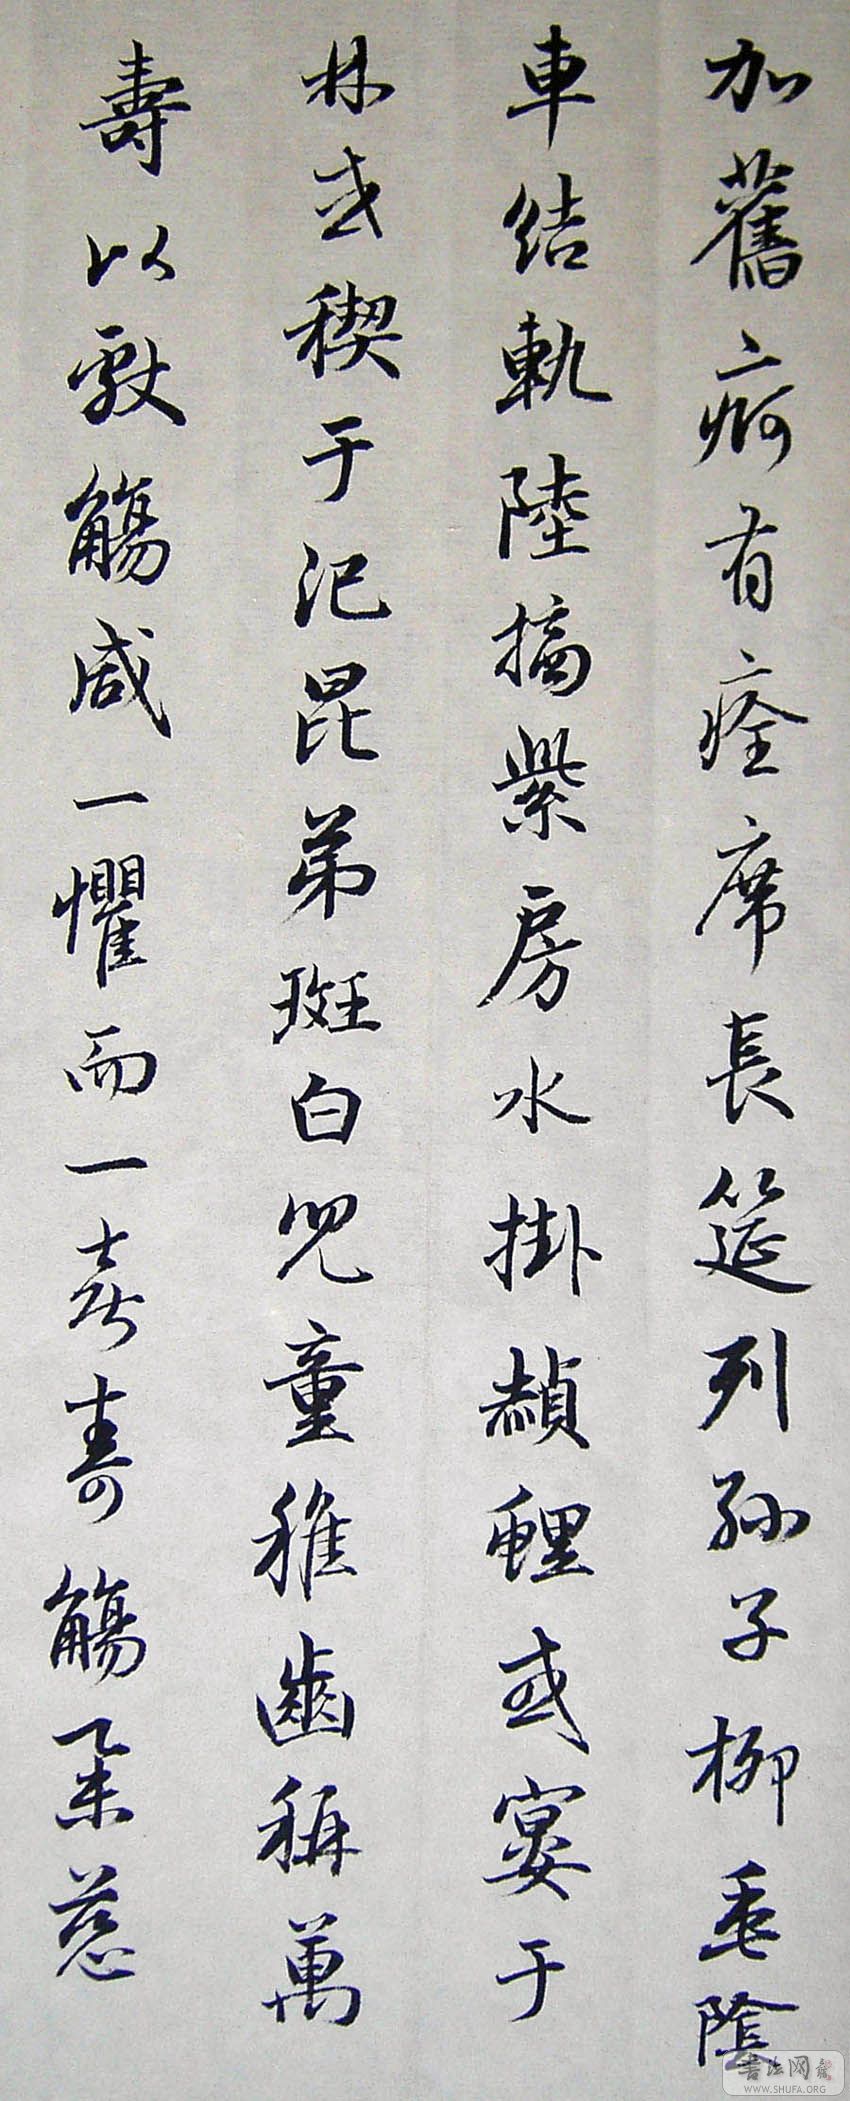 加舊痾有痊席長筵列孫子柳垂陰
車結軌陸摘紫房水掛赬鯉或宴于
林或禊于汜昆弟斑白兒童稚齒稱萬
壽以獻觴咸一懼而一喜壽觴舉慈
书法网
WWW.SHUFA.ORG